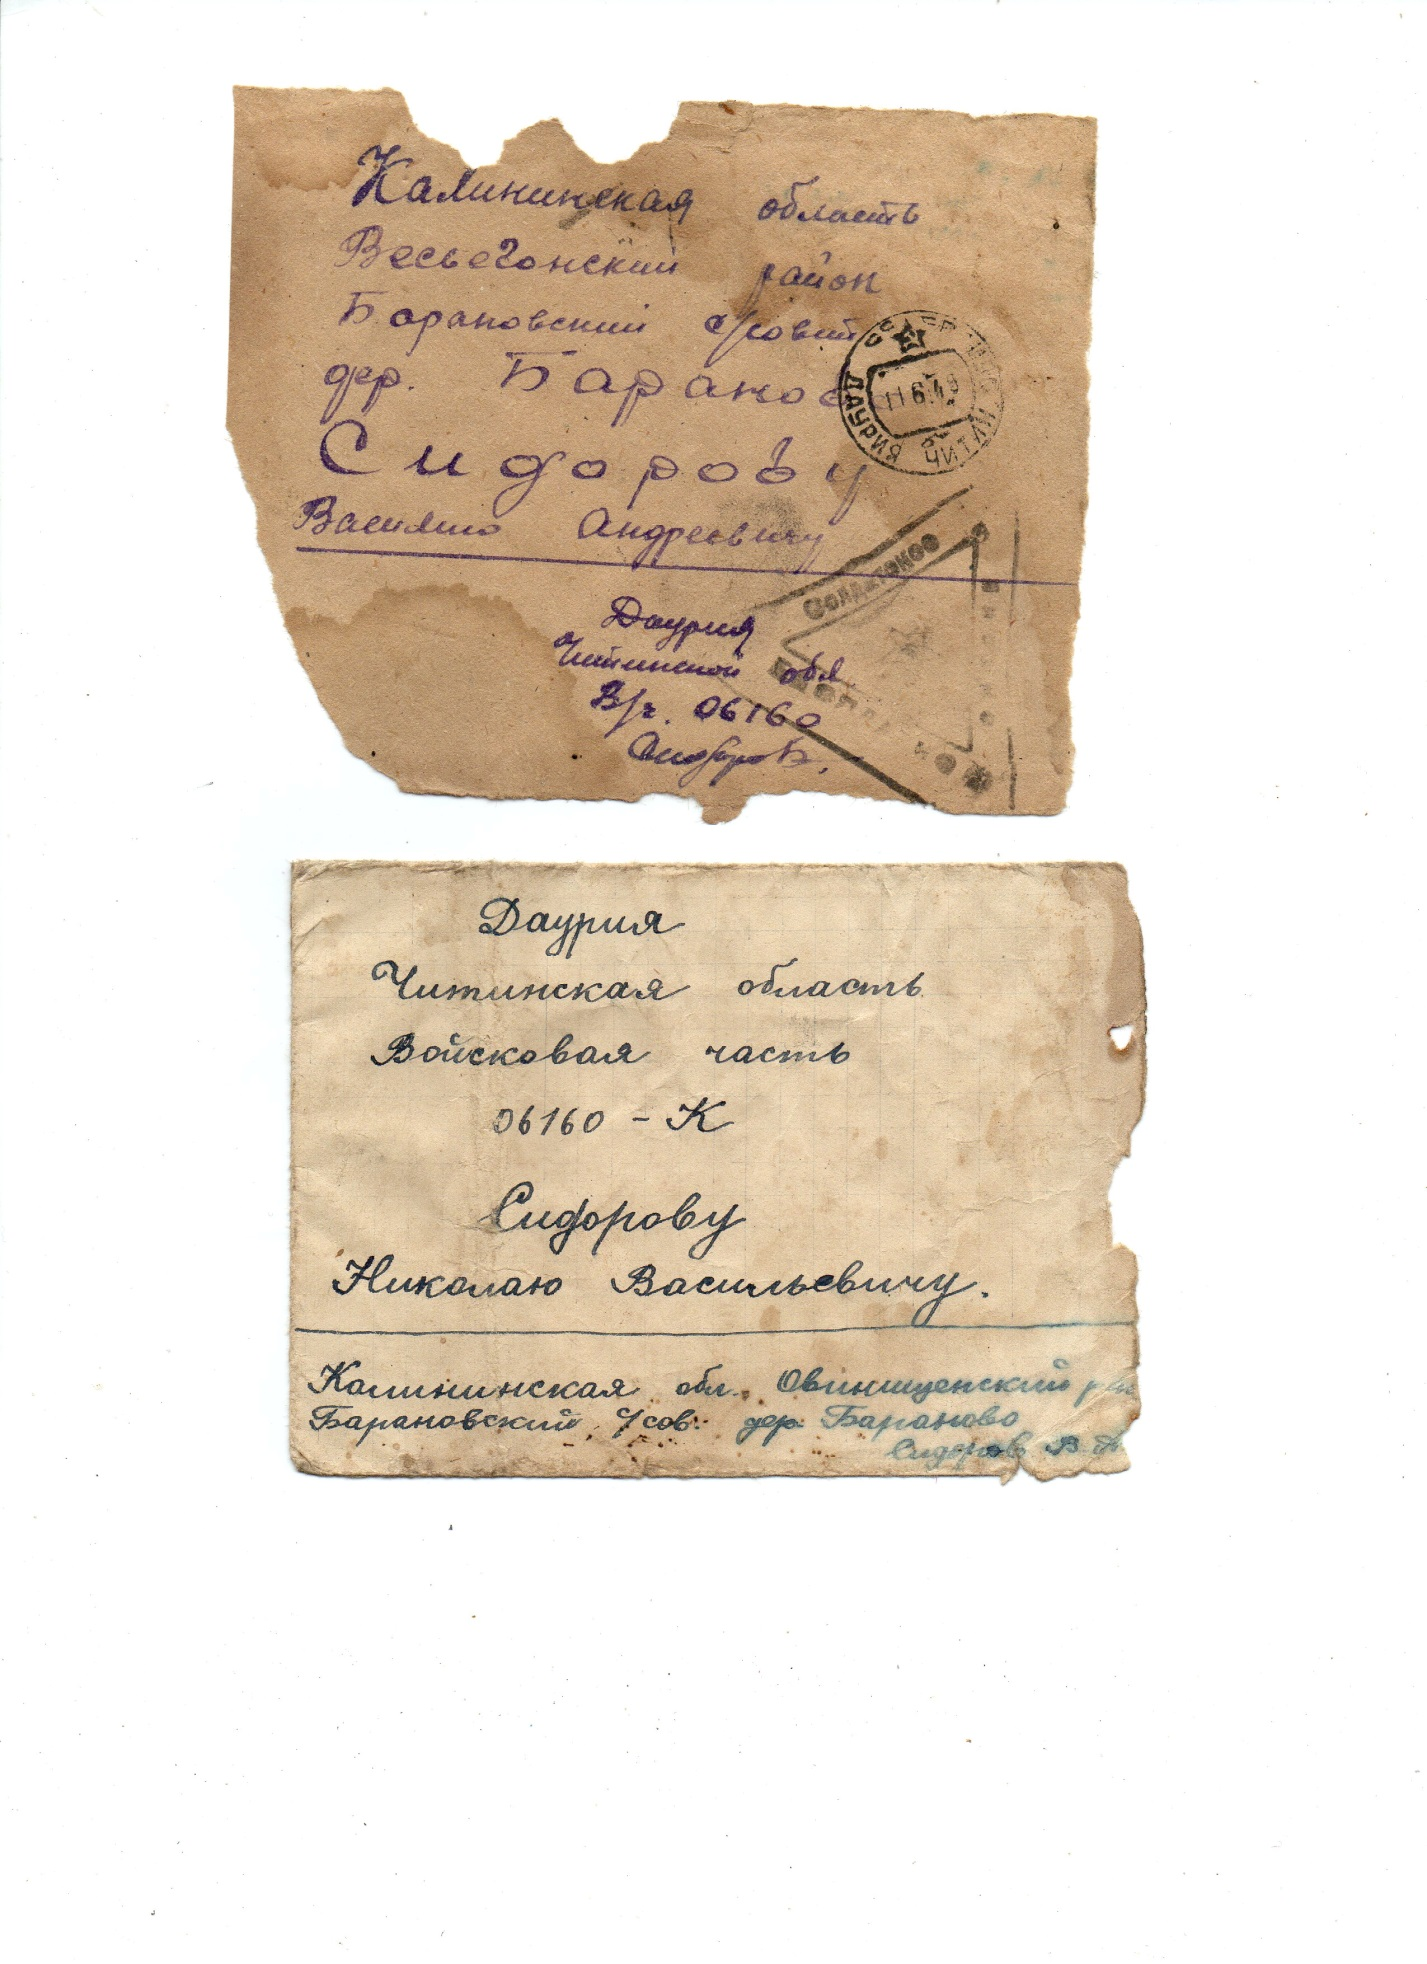 Калининская область
Весьегонский район
Барановский с/совит
дер. Баранов
Сидорову
Василию Андреевичу
СССР
ДАУРИЯ ЧИТИН
11 6 4
Солдатское
Даурия
Читинской обл
В/ч. 06160
Сидоров.
Даурия
Читинская область
Войсковая часть
06160 - К
Сидорову
Николаю Васильевичу.
Калининская обл. Овинищенский р/н
Барановский с/сов. дер. Бараново
Сидоров В. А